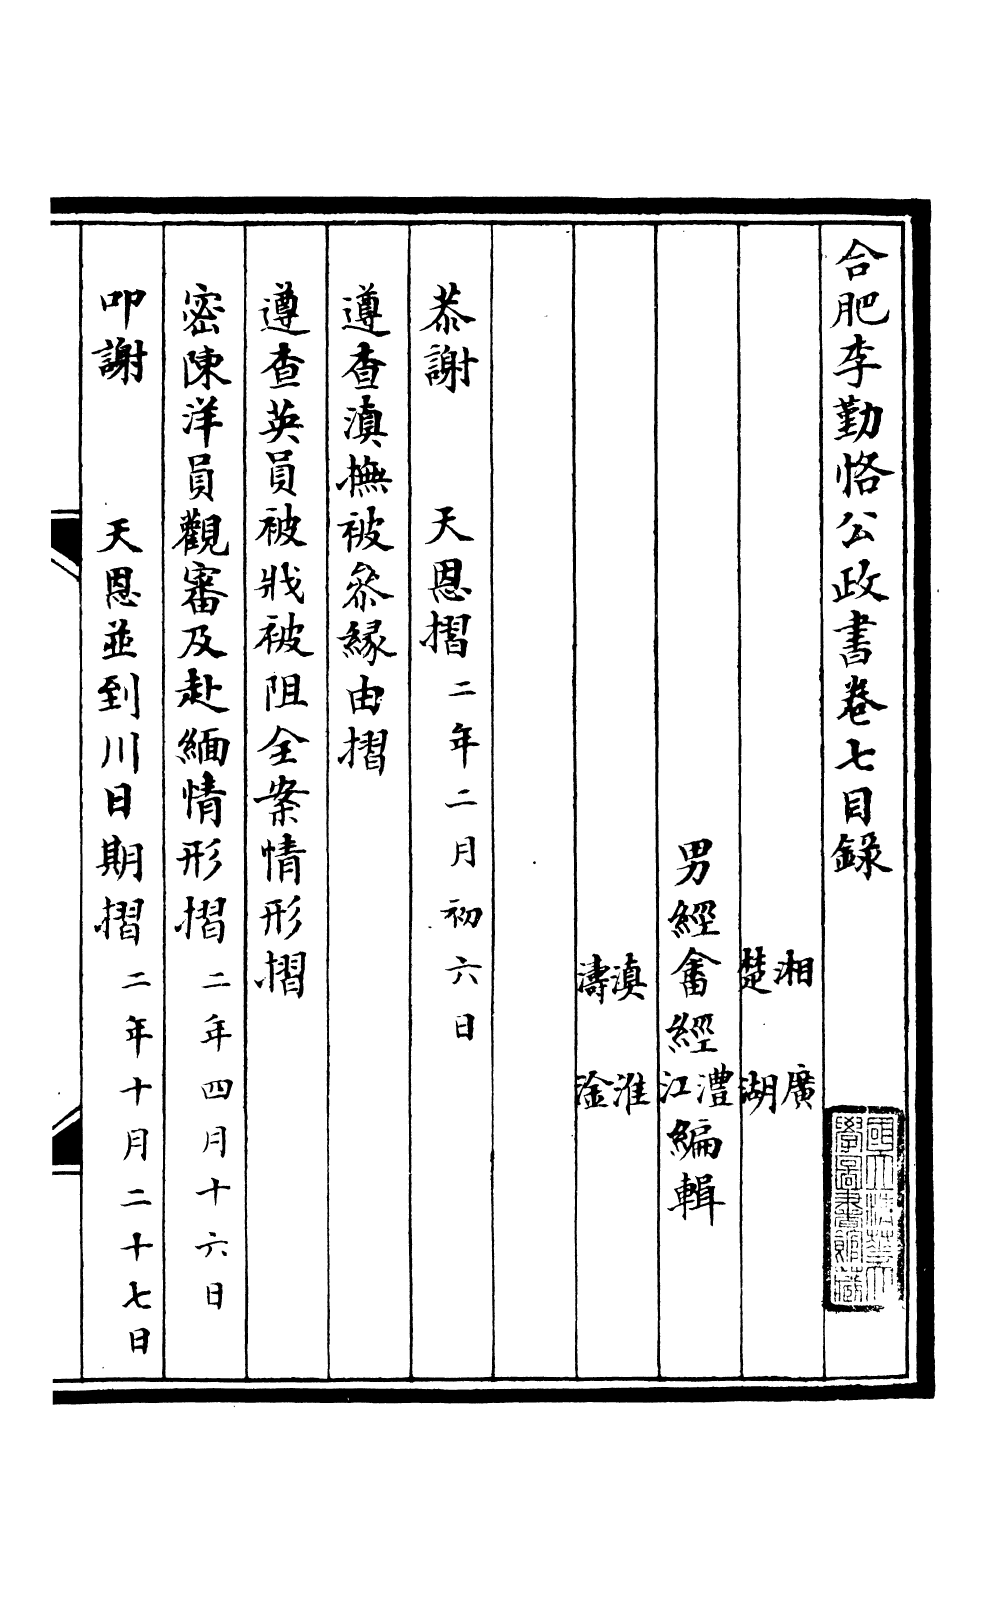 合肥李勤恪公政書卷七目錄
國立清華大
學圖書館藏
湘　廣
楚　湖
男經畬經澧江編輯
滇　淮
濤　淦
恭謝　天恩摺二年二月初六日
遵查滇撫被叅緣由摺
遵查英員被戕被阻全案情形摺
密陳洋員觀審及赴緬情形摺二年四月十六日
叩謝　天恩並到川日期摺二年十月二十七日